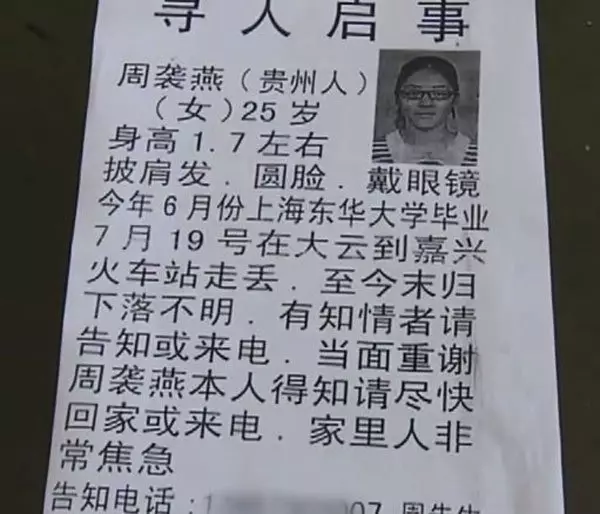 寻人启事
周袭燕（贵州人）
（女）25岁
身高1.7左右
披肩发．圆脸．戴眼镜
今年6月份上海东华大学毕业
7月19号在大云到嘉兴
火车站走丢．至今末归
下落不明．有知情者请
告知或来电．当面重谢
周袭燕本人得知请尽快
回家或来电．家里人非
常焦急
告知电话：1 07 周先生